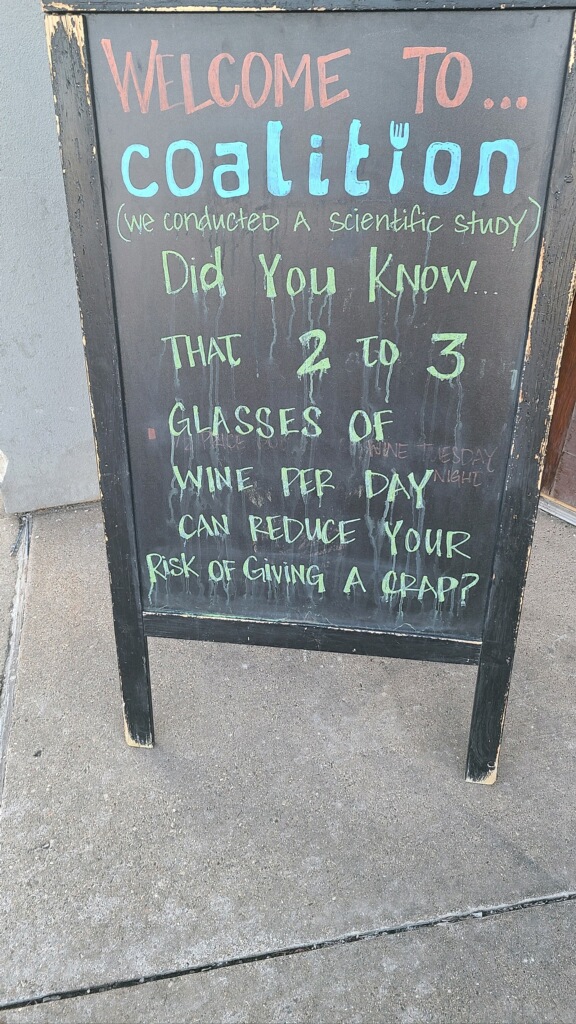 WELCOME TO...
coalition
(we conducted A scientific study)
Did You Know...
THAT 2 to 3
GLASSES OF
WINE TUESDAY
NIGHT
WINE PER DAY
CAN REDUCE YOUR
RISK OF GIVING A CRAP?